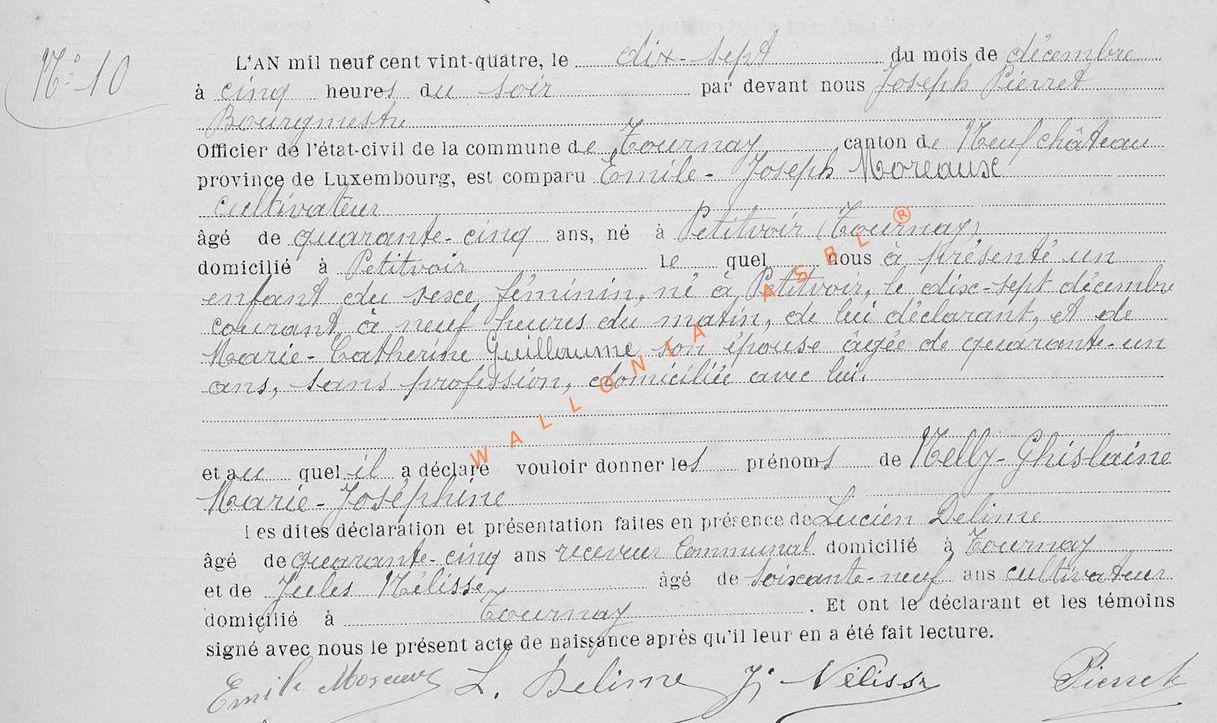 Nº 10
L'AN mil neuf cent vint-quatre, le dix-sept du mois de décembre
à cinq heures du soir par devant nous Joseph Pierret
Bourgmestre
Officier de l'état-civil de la commune de Tournay canton de Neufchâteau
province de Luxembourg, est comparu Emile-Joseph Moreaux
cultivateur
âgé de quarante-cinq ans, né à Petitvoir (Tournay)
domicilié à Petitvoir le quel nous à présenté un
enfant du sexe féminin, né à Petitvoir, le dix-sept décembre
courant, à neuf heures du matin, de lui déclarant, et de
Marie-Catherine Guillaume son épouse âgée de quarante-un
ans, sans profession, domiciliée avec lui.
et au quel il a déclaré vouloir donner les prénoms de Nelly-Ghislaine
Marie-Joséphine
Les dites déclaration et présentation faites en présence de Lucien Delime
âgé de quarante-cinq ans receveur Communal domicilié à Tournay
et de Jules Nélisse âgé de soixante-neuf ans cultivateur
domicilié à Tournay. Et ont le déclarant et les témoins
signé avec nous le présent acte de naissance après qu'il leur en a été fait lecture.
Emile Moreaux L. Delime J. Nélisse Pierret
WALLONIA ASBL ®